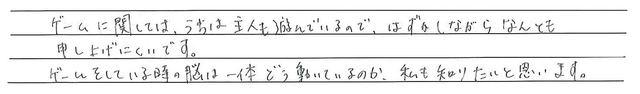 ゲームに関しては、うちは主人も遊んでいるので、はずかしながらなんとも
申し上げにくいです。
ゲームをしている時の脳は一体どう動いているのか、私も知りたいと思います。